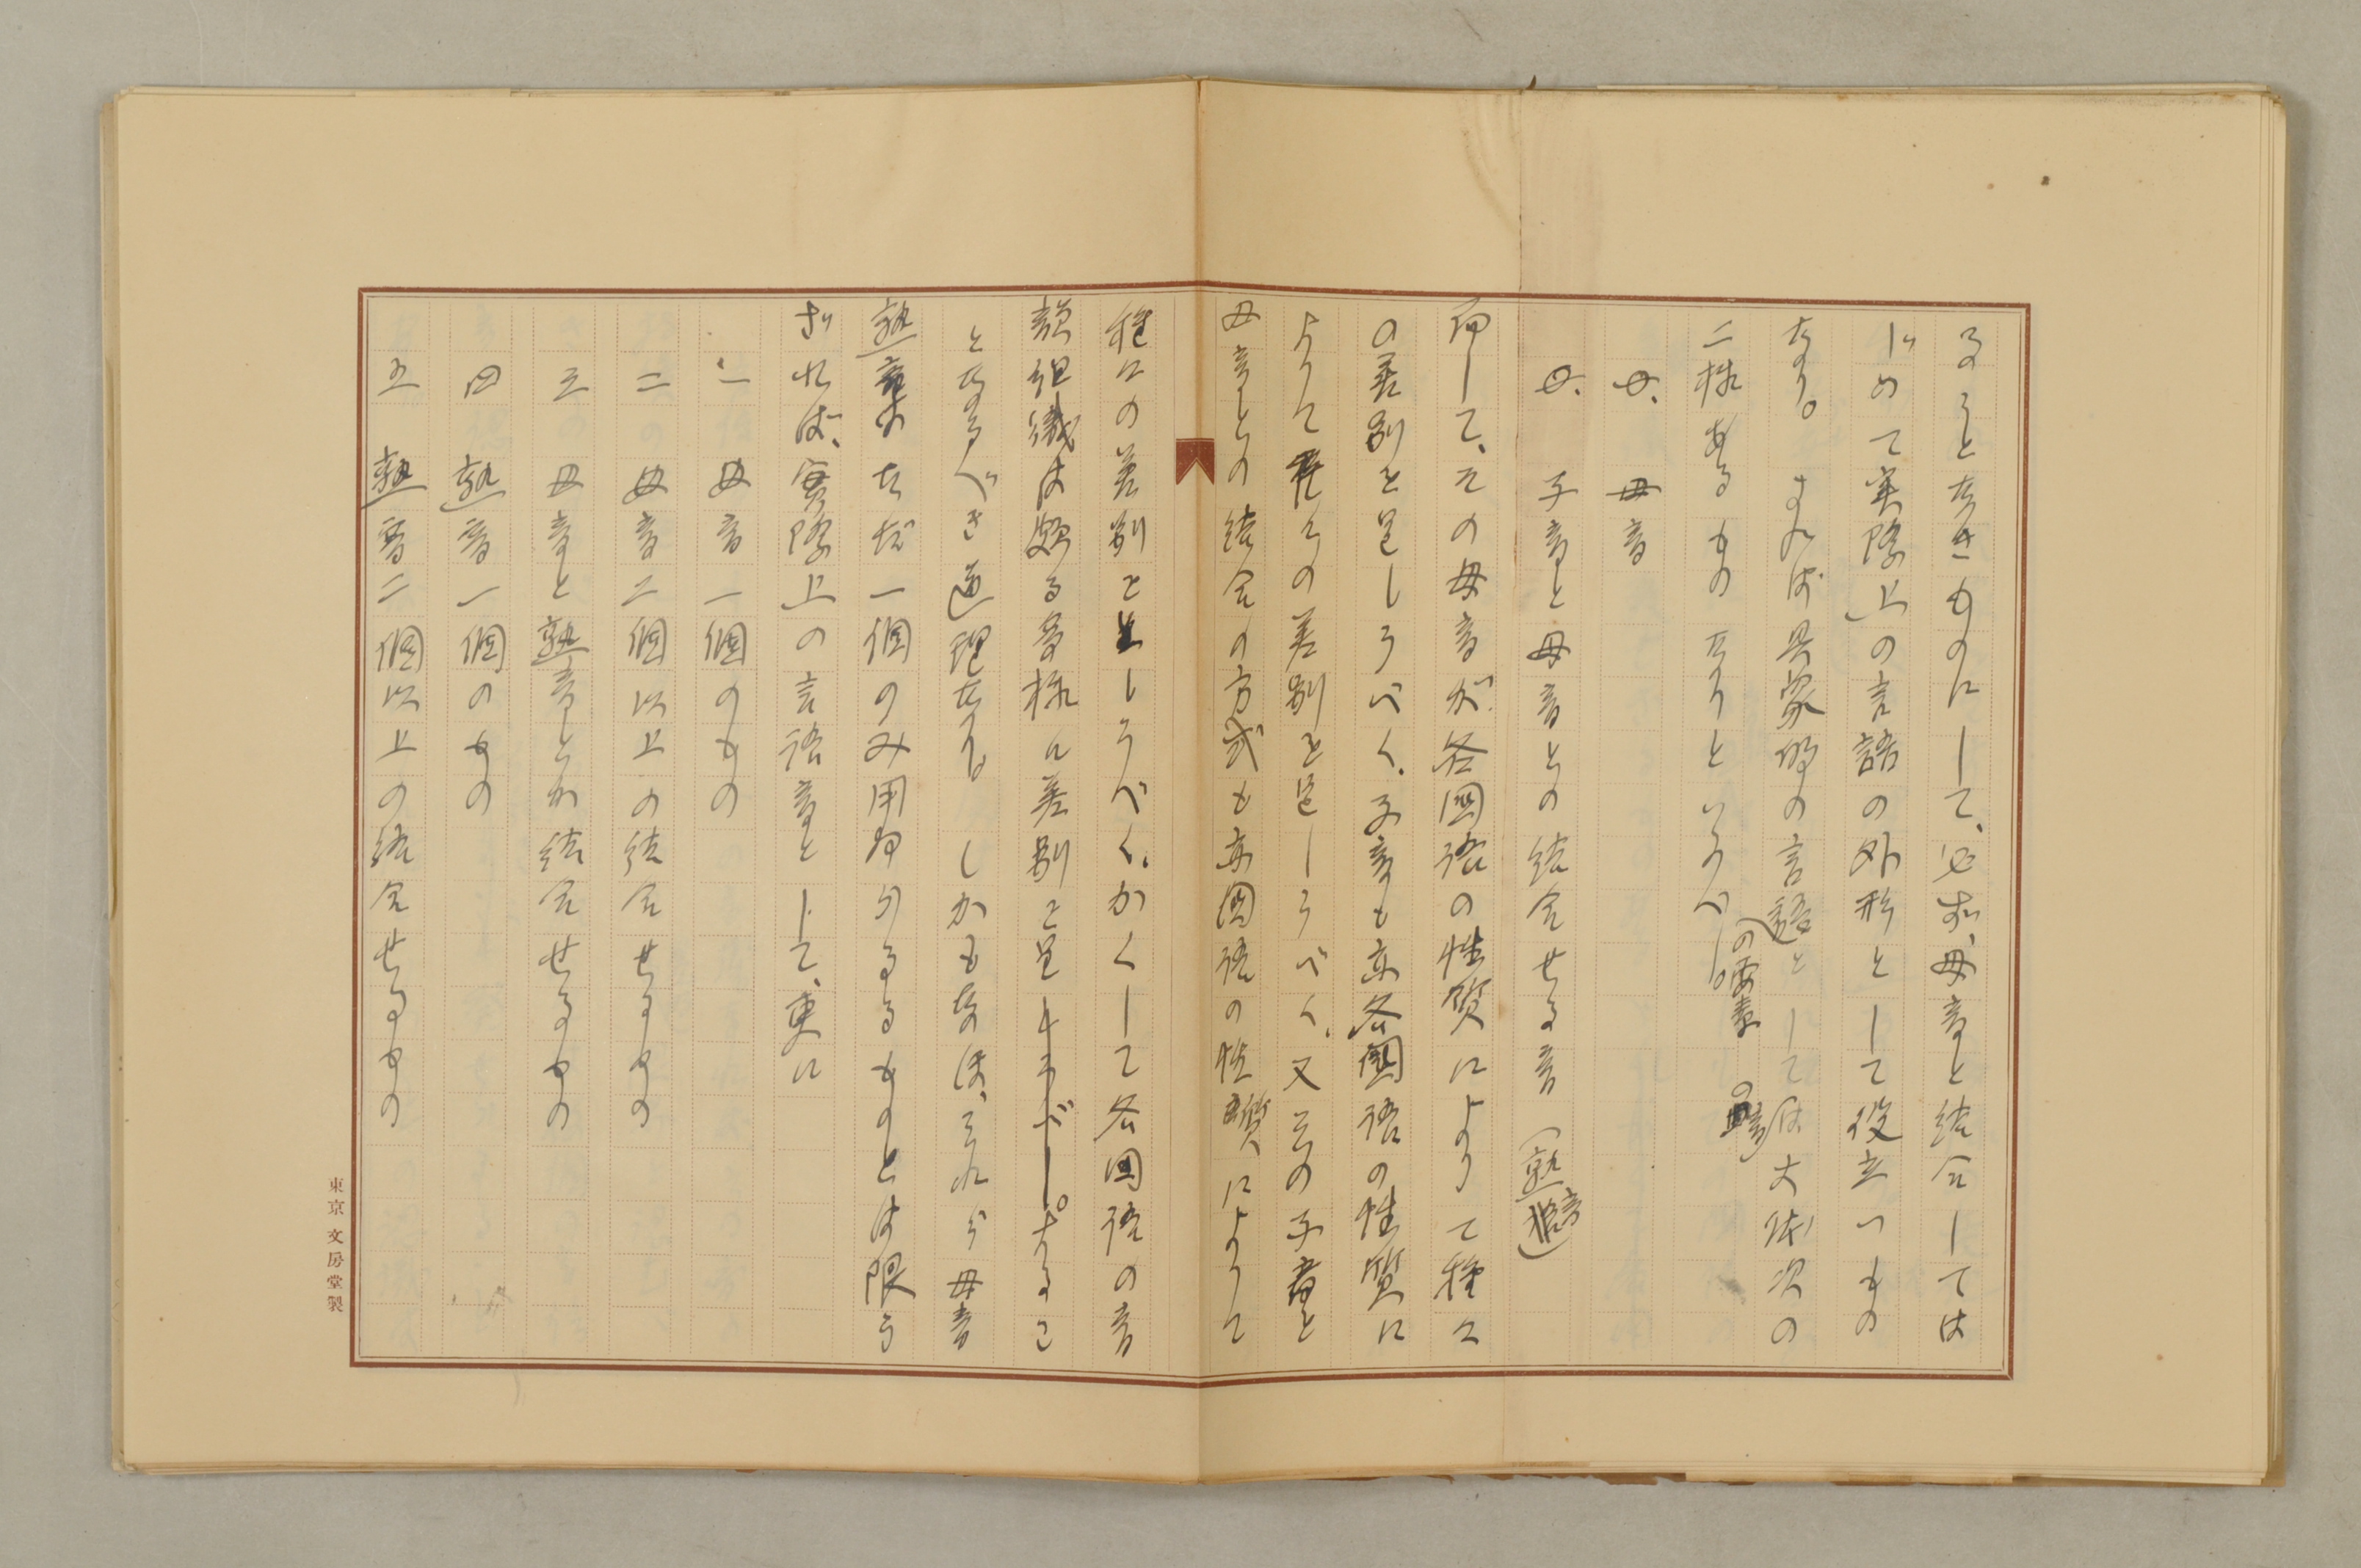 ることなきものにして、必ず、母音と結合しては
じめて実際上の言語の外形として役立つもの
なり。されば具象的の言語としては大体次の
の要素
の
二様あるものなりといふべし。
母音
子音と母音との結合せる音(熟音)
而して、その母音が各國語の性質によりて種々
の差別を呈しうべく、子音も亦各國語の性質に
よりて種々の差別を呈しうべく、又その子音と
母音との結合の方式も亦國語の性質によりて
種々の差別を生しうべく、かくして各国語の音
韻組織は頗る多様に差別を呈しうべし。かるこ
となるべき道理なり。しかもなほ、それら母音
熟音はただ一個のみ用ゐらるるものとは限ら
ざれば、實際上の言語音として、更に
一 母音一個のもの
二 母音二個以上の結合せるもの
三 母音と熟音とが結合せるもの
四 熟音一個のもの
五 熟音二個以上の結合せるもの
東京 文房堂製